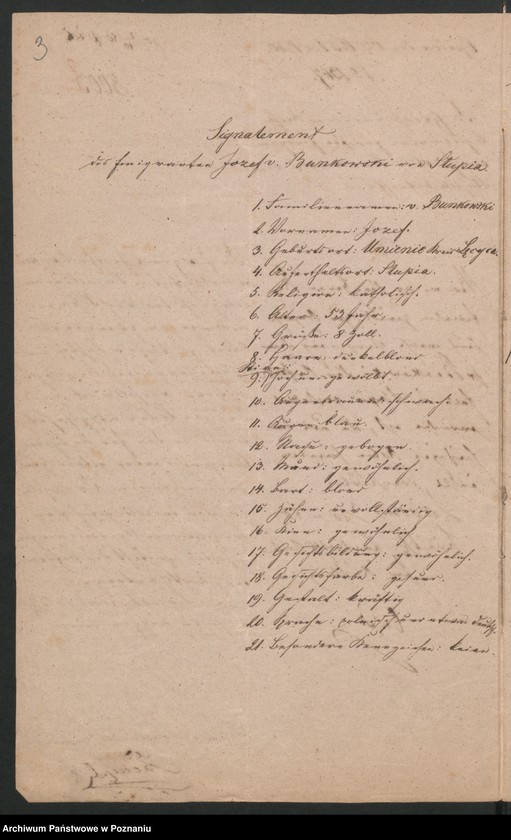 3
Signalement
des Emigranten Jozef v. Bunkowski aus Slupia.
1. Familienname: v. Bunkowski
2. Vornamen: Jozef.
3. Geburtsort: Umienie Kreis
4. Aufenthaltsort: Slupia.
5. Religion: katholisch.
6. Alter: 53 Jahr.
7. Größe: 8 Zoll.
8. Haare: dunkelblond
Stirn:
9. hoch und gewölbt.
10. Augenbraunen: schwach.
11. Augen: blau.
12. Nase: gebogen.
13. Mund: gewöhnlich.
14. Bart: blond
15. Zähne: unvollständig
16. Kinn: gewöhnlich
17. Gesichtsbildung: gewöhnlich.
18. Gesichtsfarbe: gesund.
19. Gestalt: kräftig
20. Sprache: polnisch und etwas deutsch.
21. Besondere Kennzeichen: keine.
Archiwum Państwowe w Poznaniu